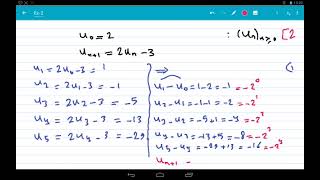 Ex-2
U₀ = 2 : (Uₙ)ₙ≥₀ [2
Uₙ₊₁ = 2Uₙ - 3
U₁ = 2U₀ - 3 = 1
U₂ = 2U₁ - 3 = -1
U₃ = 2U₂ - 3 = -5
U₄ = 2U₃ - 3 = -13
U₅ = 2U₄ - 3 = -29
⇒
U₁ - U₀ = 1 - 2 = -1 = -2⁰
U₂ - U₁ = -1 - 1 = -2 = -2¹
U₃ - U₂ = -5 + 1 = -4 = -2²
U₄ - U₃ = -13 + 5 = -8 = -2³
U₅ - U₄ = -29 + 13 = -16 = -2
Uₙ₊₁ -